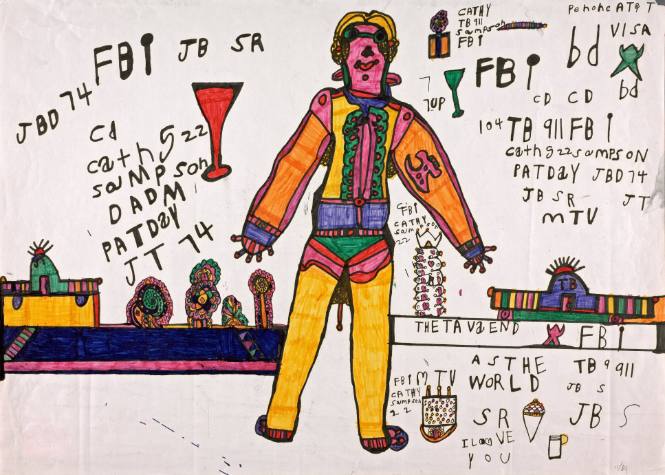 FBI JB SR
JBD 74
Cd
cathg 22
sampson
DADM
PATDAY
JT 74
CATHY
TB 911
sampson
FBI
VISA
bd
bd
7
7UP
FBI
CD CD
104 TB 911 FBI
cathg 22 sampson
PATDAY JBD 74
JB SR JT
MTV
FBI
CATHY
sampson
22
TB
THETAVAEND
FBI
AS THE
WORLD
TB 9 911
JB S
FBI MTV
CATHY
sampson
22
SR
JB S
I LOVE
YOU